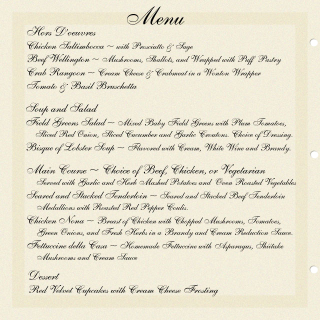 Menu
Hors D'oeuvres
Chicken Saltimbocca ~ with Prosciutto & Sage
Beef Wellington ~ Mushrooms, Shallots, and Wrapped with Puff Pastry
Crab Rangoon ~ Cream Cheese & Crabmeat in a Wonton Wrapper
Tomato & Basil Bruschetta
Soup and Salad
Field Greens Salad ~ Mixed Baby Field Greens with Plum Tomatoes,
Sliced Red Onion, Sliced Cucumber and Garlic Croutons. Choice of Dressing.
Bisque of Lobster Soup ~ Flavored with Cream, White Wine and Brandy.
Main Course ~ Choice of Beef, Chicken, or Vegetarian
Served with Garlic and Herb Mashed Potatoes and Oven Roasted Vegetables
Seared and Stacked Tenderloin ~ Seared and Stacked Beef Tenderloin
Medallions with Roasted Red Pepper Coulis.
Chicken Nona ~ Breast of Chicken with Chopped Mushrooms, Tomatoes,
Green Onions, and Fresh Herbs in a Brandy and Cream Reduction Sauce.
Fettuccine della Casa ~ Homemade Fettuccine with Asparagus, Shiitake
Mushrooms and Cream Sauce
Dessert
Red Velvet Cupcakes with Cream Cheese Frosting